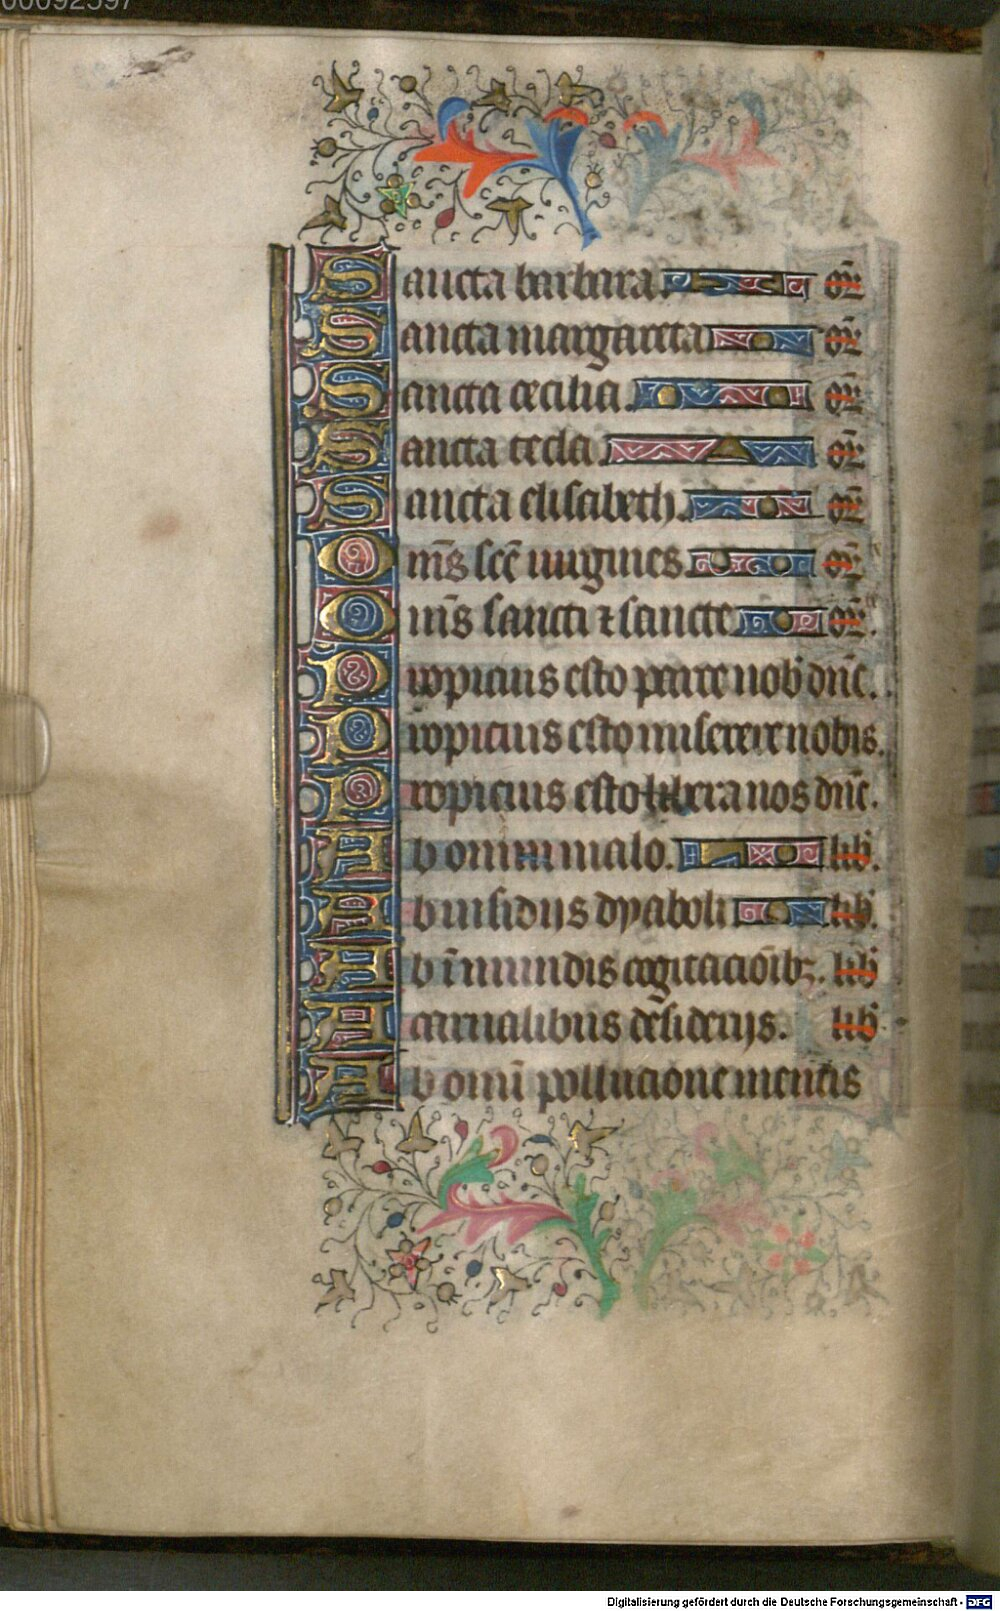 00092597
Sancta barbara. or̄
Sancta margareta or̄
Sancta cecilia. or̄
Sancta tecla or̄
Sancta elisabeth. or̄
Om̄s sc̄e uirgines or̄
Om̄s sancti ⁊ sancte or̄.
Propicius esto parce nob̄ dn̄e.
Propicius esto miserere nobis.
Propicius esto libera nos dn̄e.
Ab omni malo. lib̄.
Ab insidijs dyaboli lib̄.
Ab īmundis cogitacōibꝫ. lib̄
A carnalibus desiderijs. lib̄
Ab omī pollucione mentis
Digitalisierung gefördert durch die Deutsche Forschungsgemeinschaft - DFG